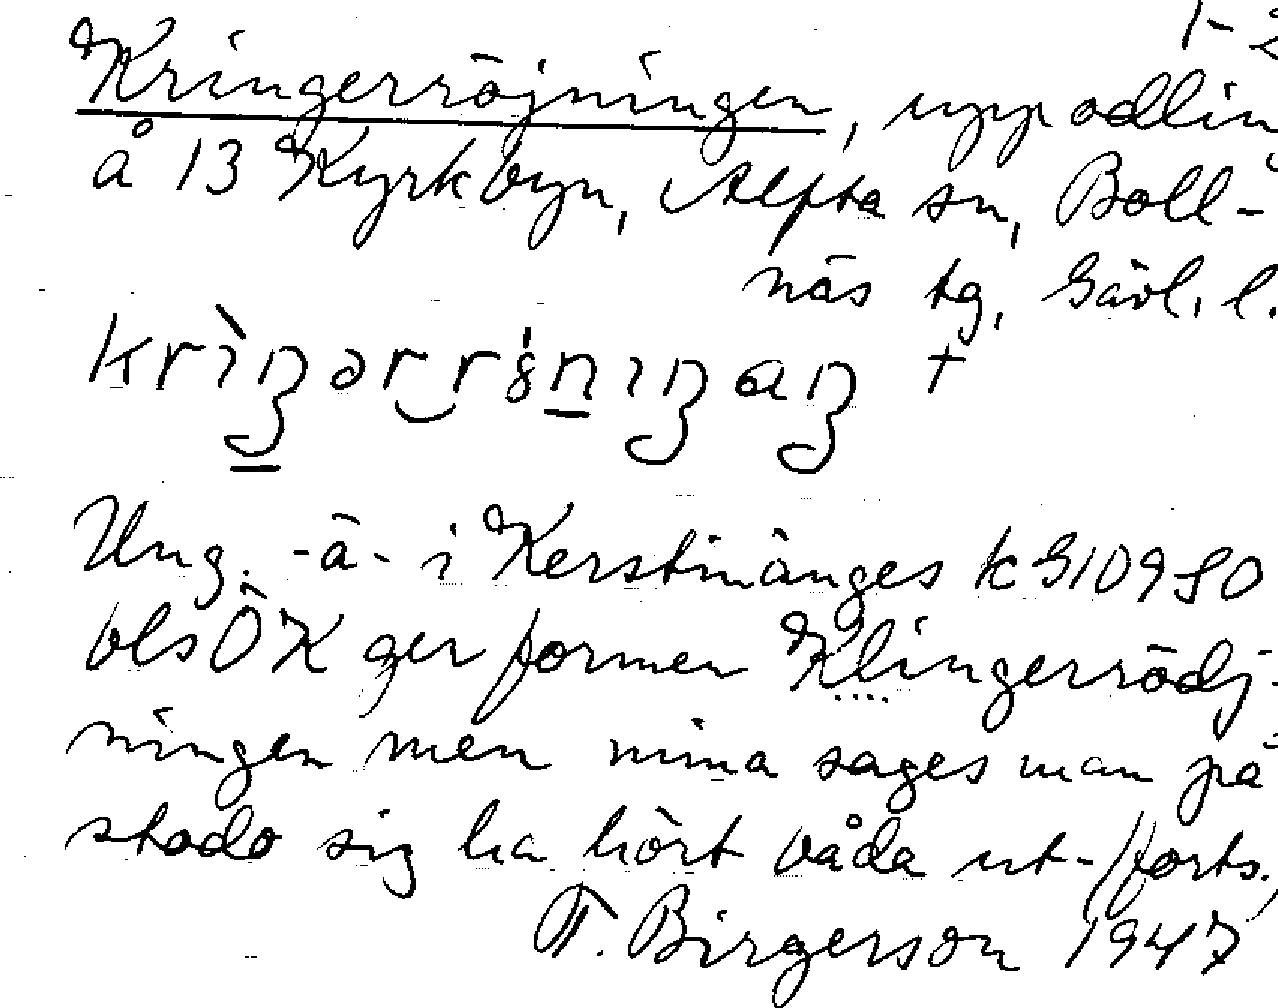 1-2
Kringerröjningen, uppodlin
å 13 Kyrkbyn, Alfta sn, Boll-
näs tg, Gävl. l.
Ung. -ä- i Kerstinänges
ÖK ger formen Klingerrödj-
ningen men mina sages man på
stodo sig ha hört båda ut- (forts.)
T. Birgerson 1947